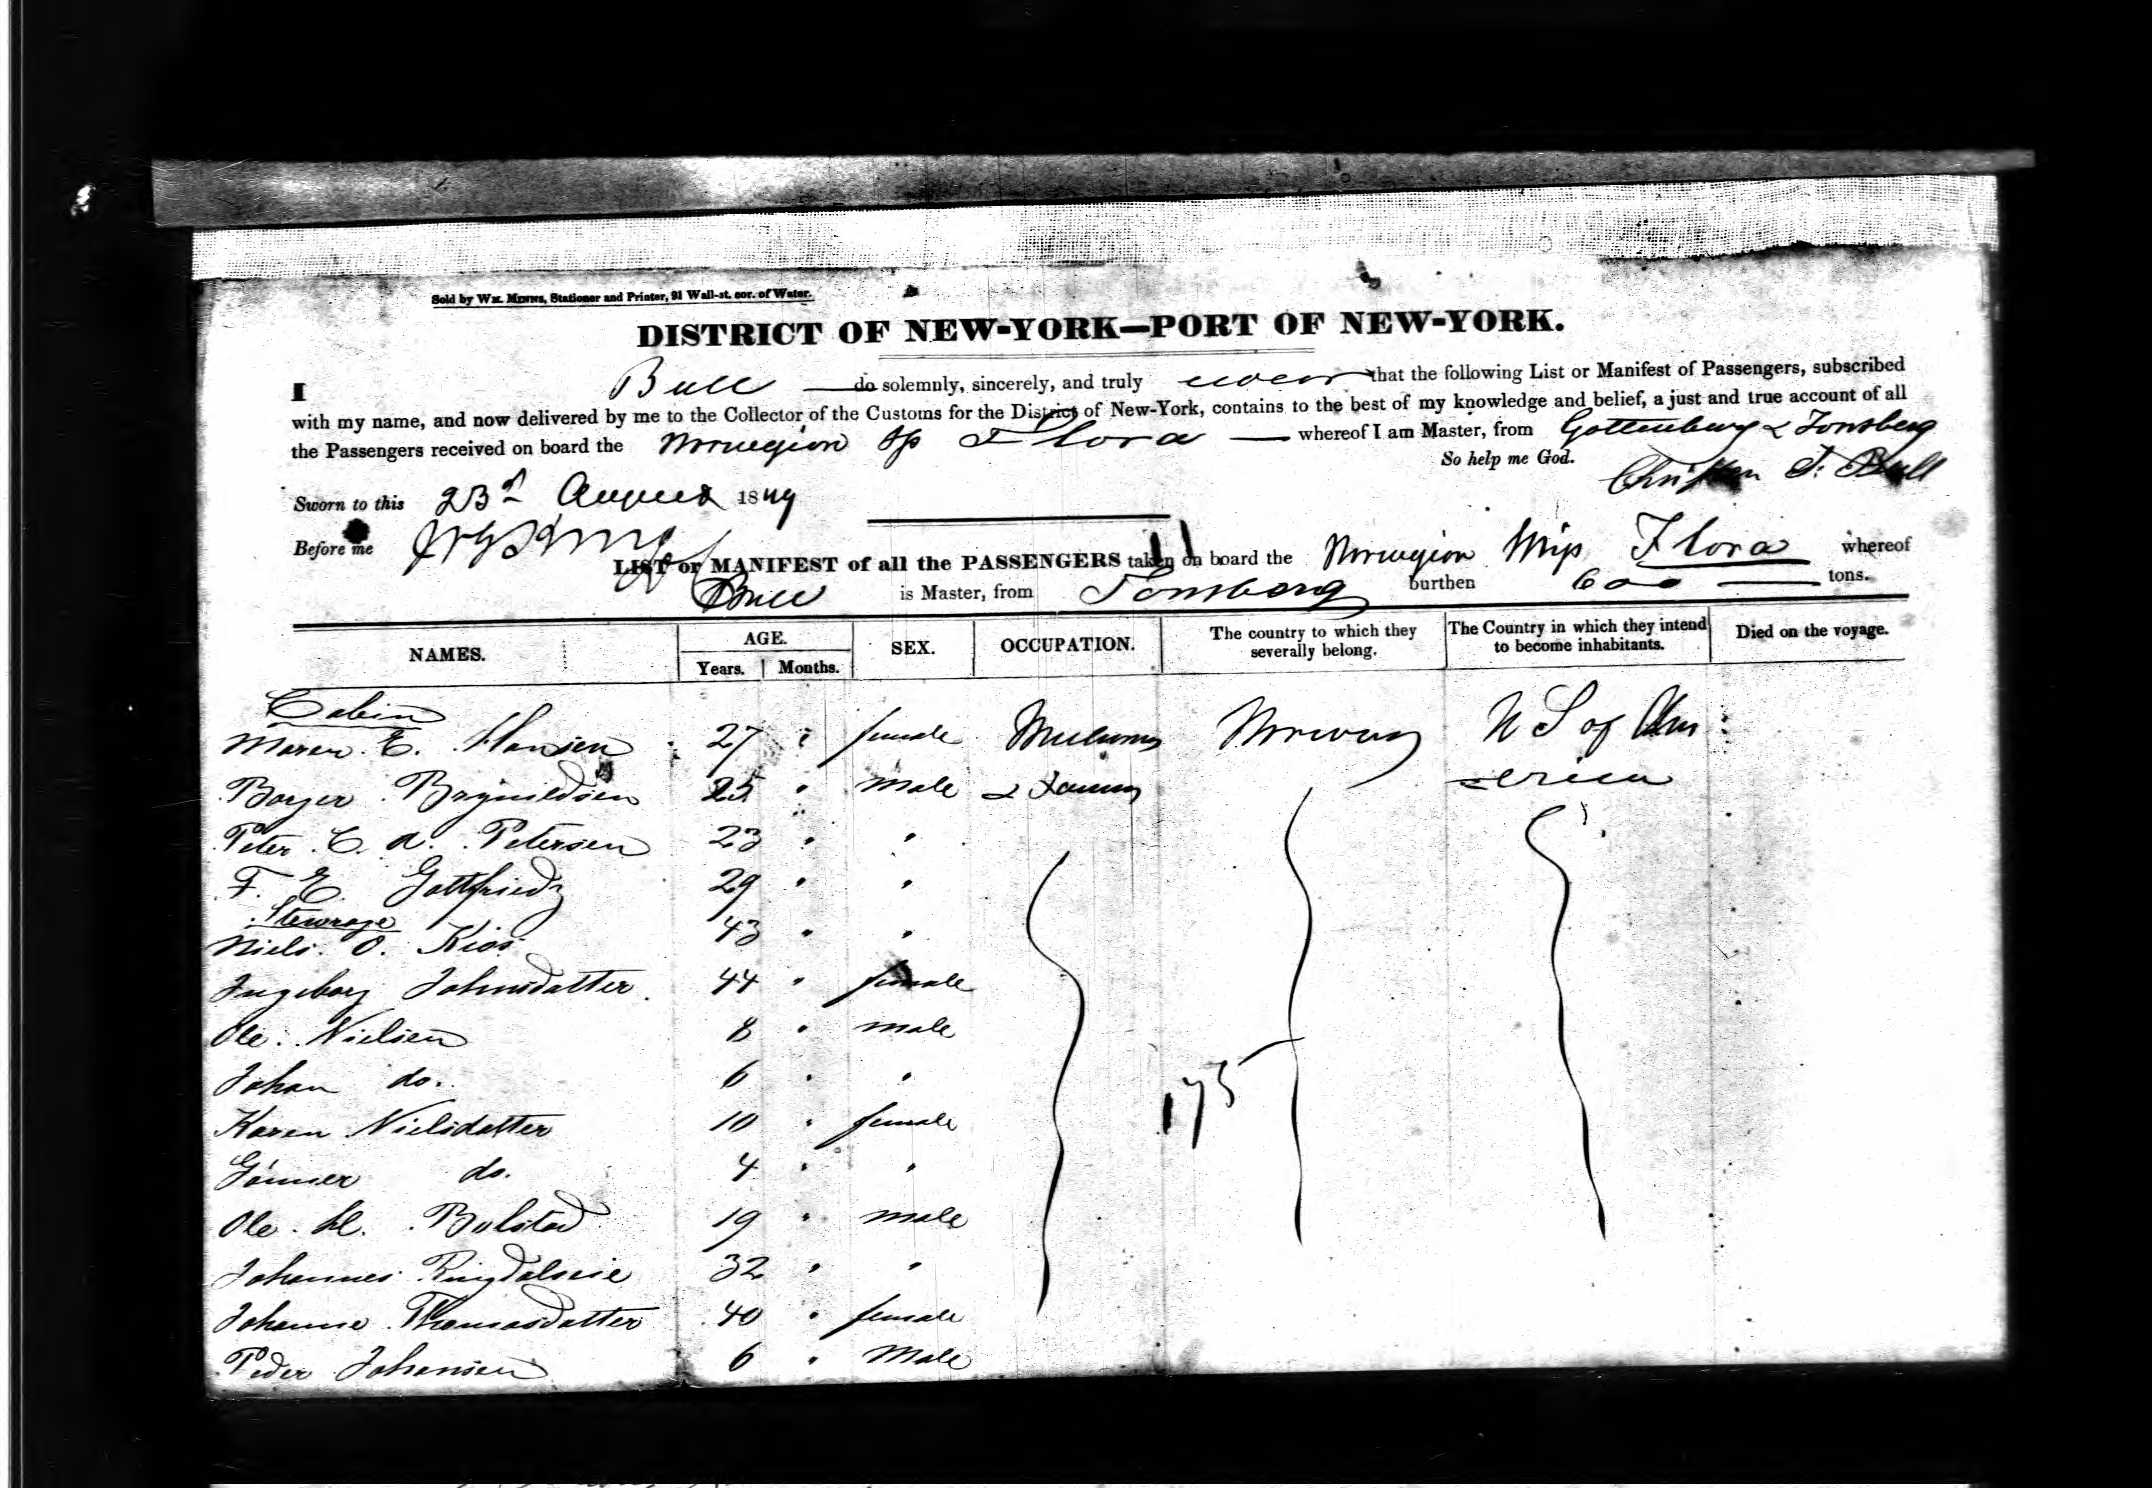 Sold by Wm. Minns, Stationer and Printer, 91 Wall-st. cor. of Water.
DISTRICT OF NEW-YORK—PORT OF NEW-YORK.
I Bull do solemnly, sincerely, and truly swear that the following List or Manifest of Passengers, subscribed
with my name, and now delivered by me to the Collector of the Customs for the District of New-York, contains to the best of my knowledge and belief, a just and true account of all
the Passengers received on board the Norwegian Sp Flora whereof I am Master, from Gottenburg & Tonsberg
So help me God.
Christen T. Bull
Sworn to this 23d August 1849
Before me
LIST or MANIFEST of all the PASSENGERS taken on board the Norwegian Ship Flora whereof
Bull is Master, from Tonsberg burthen 600 tons.
NAMES. AGE. SEX. OCCUPATION. The country to which they severally belong. The Country in which they intend to become inhabitants. Died on the voyage.
Years. Months.
Cabin
Maren E. Hansen 27 " female Mechanics Norway U S of Am
Boyer Brynildsen 25 " male & Farmers erica
Peter C. A. Petersen 23 " "
F. E. Gottfriedz 29 " "
Stewrage
Niels O. Kios 43 " "
Ingeborg Johnsdatter 44 " female
Ole Nielsen 8 " male
Johan do. 6 " "
175
Karen Nielsdatter 10 " female
Gunner do. 4 " "
Ole H. Bolstad 19 " male
Johannes Ringdalseie 32 " "
Johanne Thomasdatter 40 " female
Peder Johansen 6 " Male